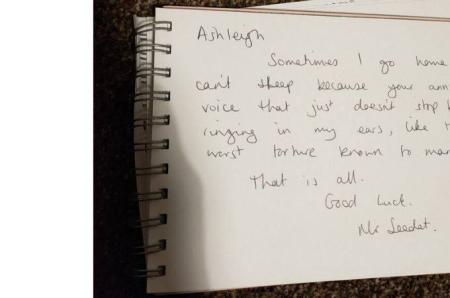 Ashleigh
Sometimes I go home
can't sleep because your ann
voice that just doesn't stop
ringing in my ears, like
worst torture known to man
That is all.
Good Luck.
Mr Seedat.